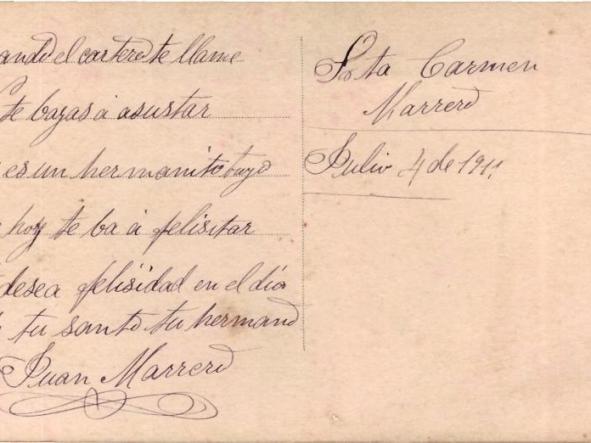 ando el cartero te llame
te bayas a asustar
es un hermanito tuyo
hoy te ba a felisitar
desea felisidad en el día
tu santo tu hermano
Juan Marrero
Srta Carmen
Marrero
Julio 4 de 1911